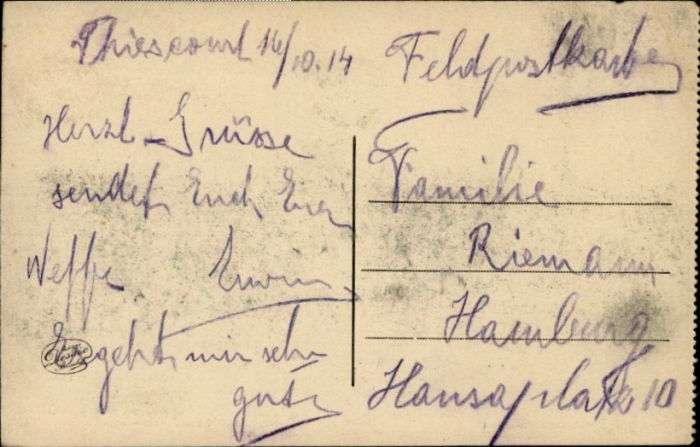 Thiescourt 14/10.14
Herzl. Grüsse
sendet Euch Euer
Neffe Erwin
Es geht mir sehr
gut
Feldpostkarte
Familie
Riemann
Hamburg
Hansaplatz 10